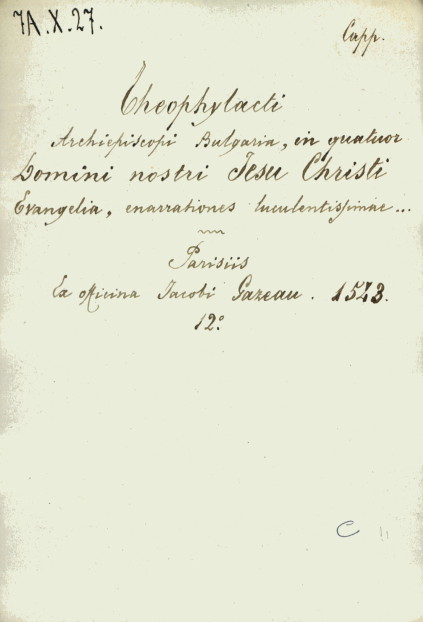 7A.X.27.
Capp.
Theophylacti
Archiepiscopi Bulgaria, in quatuor
Domini nostri Jesu Christi
Evangelia, enarrationes luculentissimae ...
Parisiis
Ex Officina Jacobi Gazeau. 1543.
12.º
C